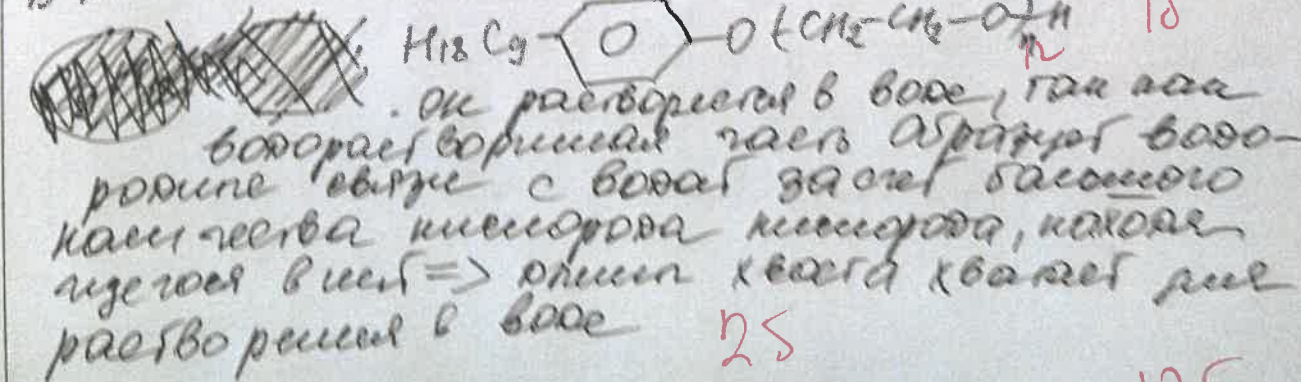 H₁₈C₉ – O – O (CH₂–CH₂–O)ₙ H 10
. он растворяется в воде, так как
водорастворимая часть образует водо-
родные связи с водой за счет большого
количества кислорода кислорода, находя-
щегося в ней => длины хвоста хватает для
растворения в воде
25